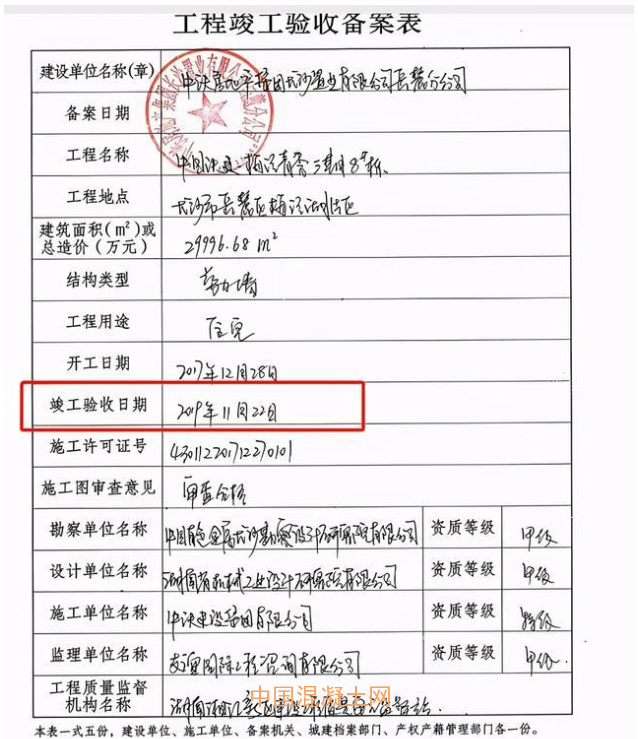 工程竣工验收备案表
建设单位名称(章) 中铁房地产集团长沙置业有限公司岳麓分公司
备案日期
工程名称 中国铁建·梅溪青秀三期8#栋
工程地点 长沙市岳麓区梅溪湖片区
建筑面积(m²)或
总造价(万元) 29996.68 m²
结构类型 剪力墙
工程用途 住宅
开工日期 2017年12月28日
竣工验收日期 2019年11月22日
施工许可证号 430112201712270101
施工图审查意见 审查合格
勘察单位名称 中国有色金属长沙勘察设计研究院有限公司 资质等级 甲级
设计单位名称 湖南省机械工业设计研究院有限公司 资质等级 甲级
施工单位名称 中铁建设集团有限公司 资质等级 特级
监理单位名称 友谊国际工程咨询有限公司 资质等级 甲级
工程质量监督
机构名称 湖南湘江新区建设工程质量安全监督站
中国混凝土网
本表一式五份，建设单位、施工单位、备案机关、城建档案部门、产权产籍管理部门各一份。